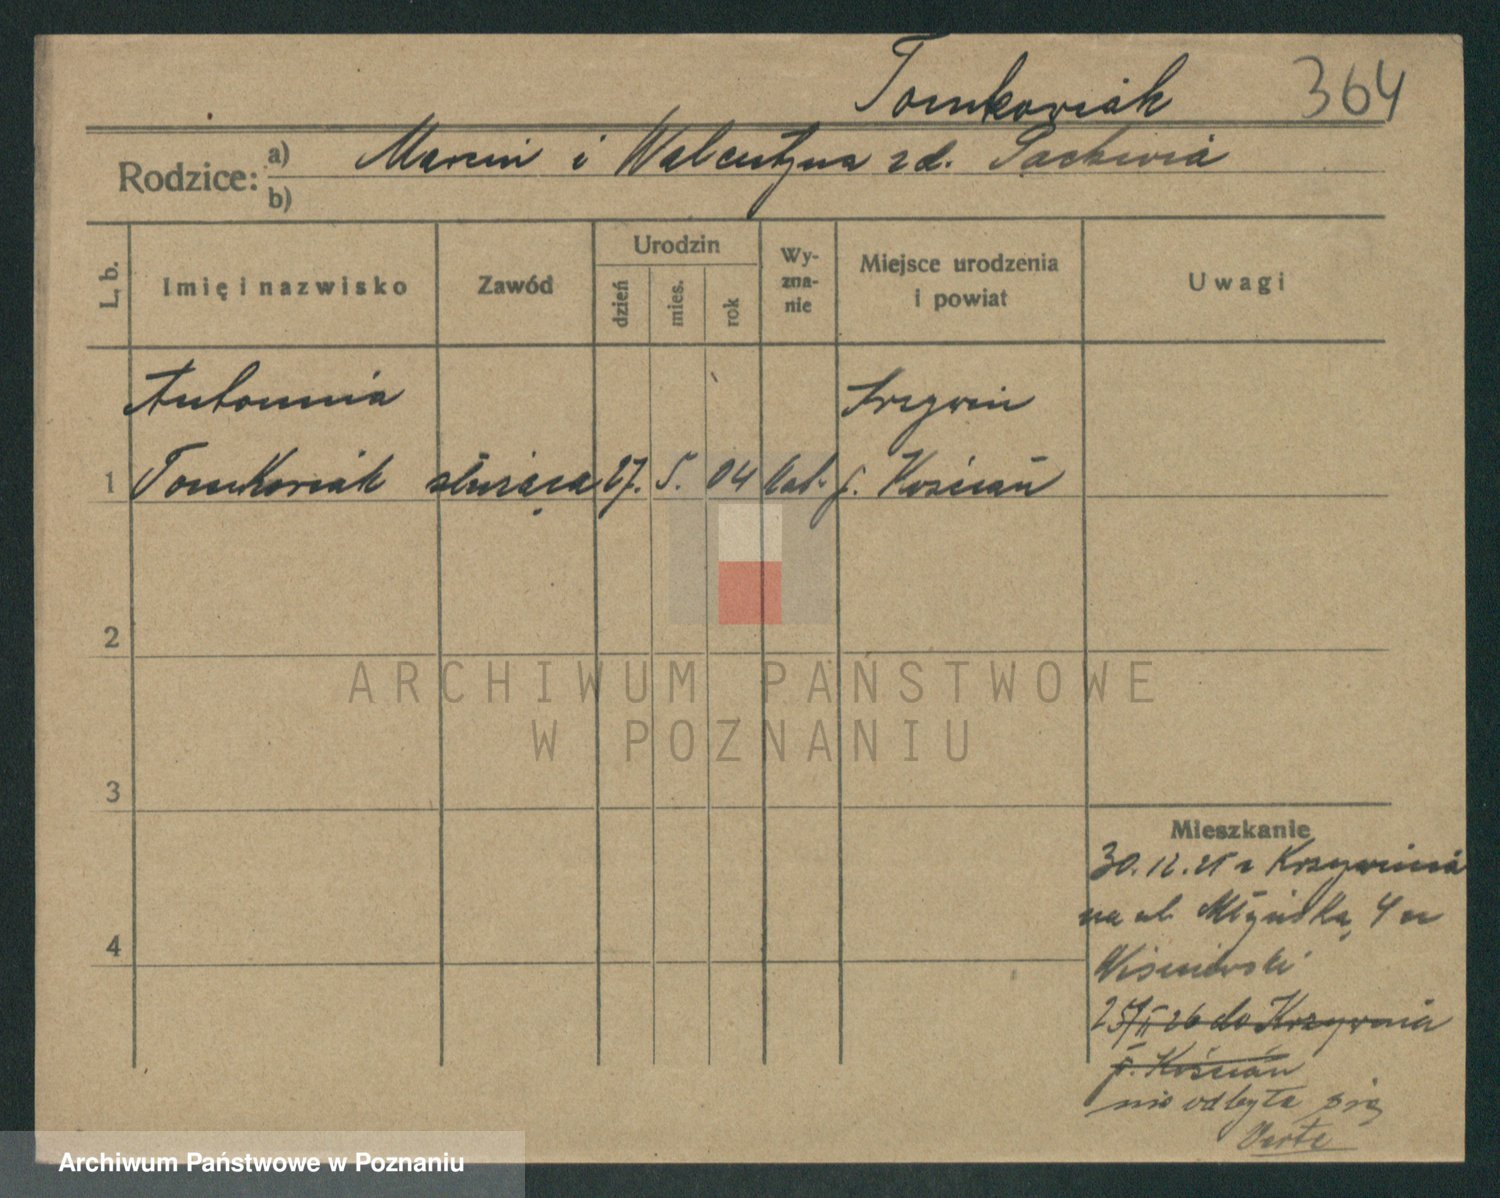 Tomkowiak 364
Rodzice: a) Marcin i Walentyna zd.
b)
L. b. Imię i nazwisko Zawód Urodzin dzień mies. rok Wy-zna-nie Miejsce urodzenia i powiat Uwagi
Antonina Krzywiń
1 Tomkowiak służąca 27. 5. 04 kat. p. Kościan
2
3
Mieszkanie
30.12.25 z Krzywinia
na ul. Młyńską 4 m
4
Wiśniewski
25/II 26 do Krzywinia
p. Kościan
nie odbyła się
Verte
ARCHIWUM PAŃSTWOWE
W POZNANIU
Archiwum Państwowe w Poznaniu